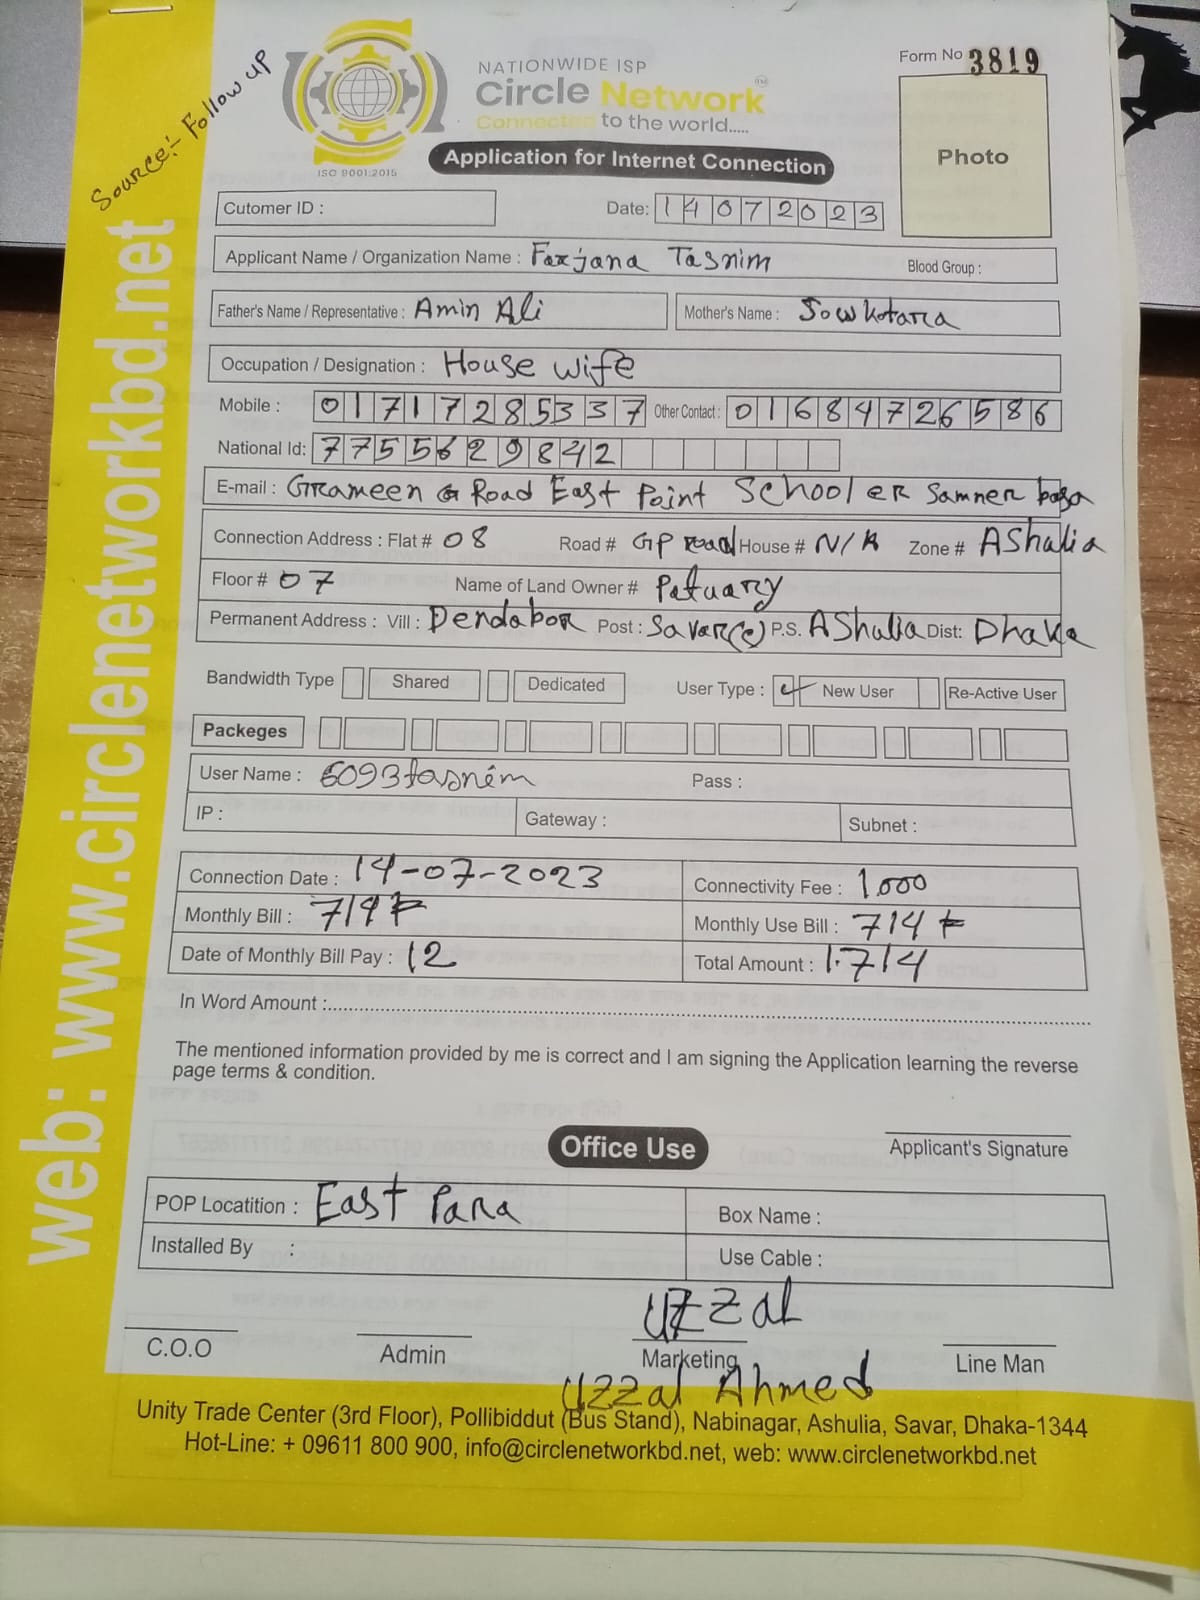 Source:- Follow up
NATIONWIDE ISP
Circle Network TM
Connected to the world.....
ISO 9001:2015
Form No 3819
Photo
Application for Internet Connection
Cutomer ID :
Date: 14072023
Applicant Name / Organization Name : Farjana Tasnim Blood Group :
Father's Name / Representative : Amin Ali Mother's Name : Sowkotara
Occupation / Designation : House wife
Mobile : 01717285337 Other Contact : 01684726586
National Id: 7755629842
E-mail : Grameen Road East Point School er Samner basa
Connection Address : Flat # 08 Road # GP road House # N/A Zone # AShulia
Floor # 07 Name of Land Owner # Patuary
Permanent Address : Vill : Dendabor Post : Savar(c) P.S. AShulia Dist: Dhaka
Bandwidth Type Shared Dedicated User Type : New User Re-Active User
Packeges
User Name : 6093tasnim Pass :
IP : Gateway : Subnet :
Connection Date : 14-07-2023 Connectivity Fee : 1000
Monthly Bill : 714 Monthly Use Bill : 714
Date of Monthly Bill Pay : 12 Total Amount : 1.714
In Word Amount :
The mentioned information provided by me is correct and I am signing the Application learning the reverse
page terms & condition.
Applicant's Signature
Office Use
POP Locatition : East Para Box Name :
Installed By : Use Cable :
Uzzal
C.O.O Admin Marketing Line Man
Uzzal Ahmed
Unity Trade Center (3rd Floor), Pollibiddut (Bus Stand), Nabinagar, Ashulia, Savar, Dhaka-1344
Hot-Line: + 09611 800 900, info@circlenetworkbd.net, web: www.circlenetworkbd.net
web: www.circlenetworkbd.net